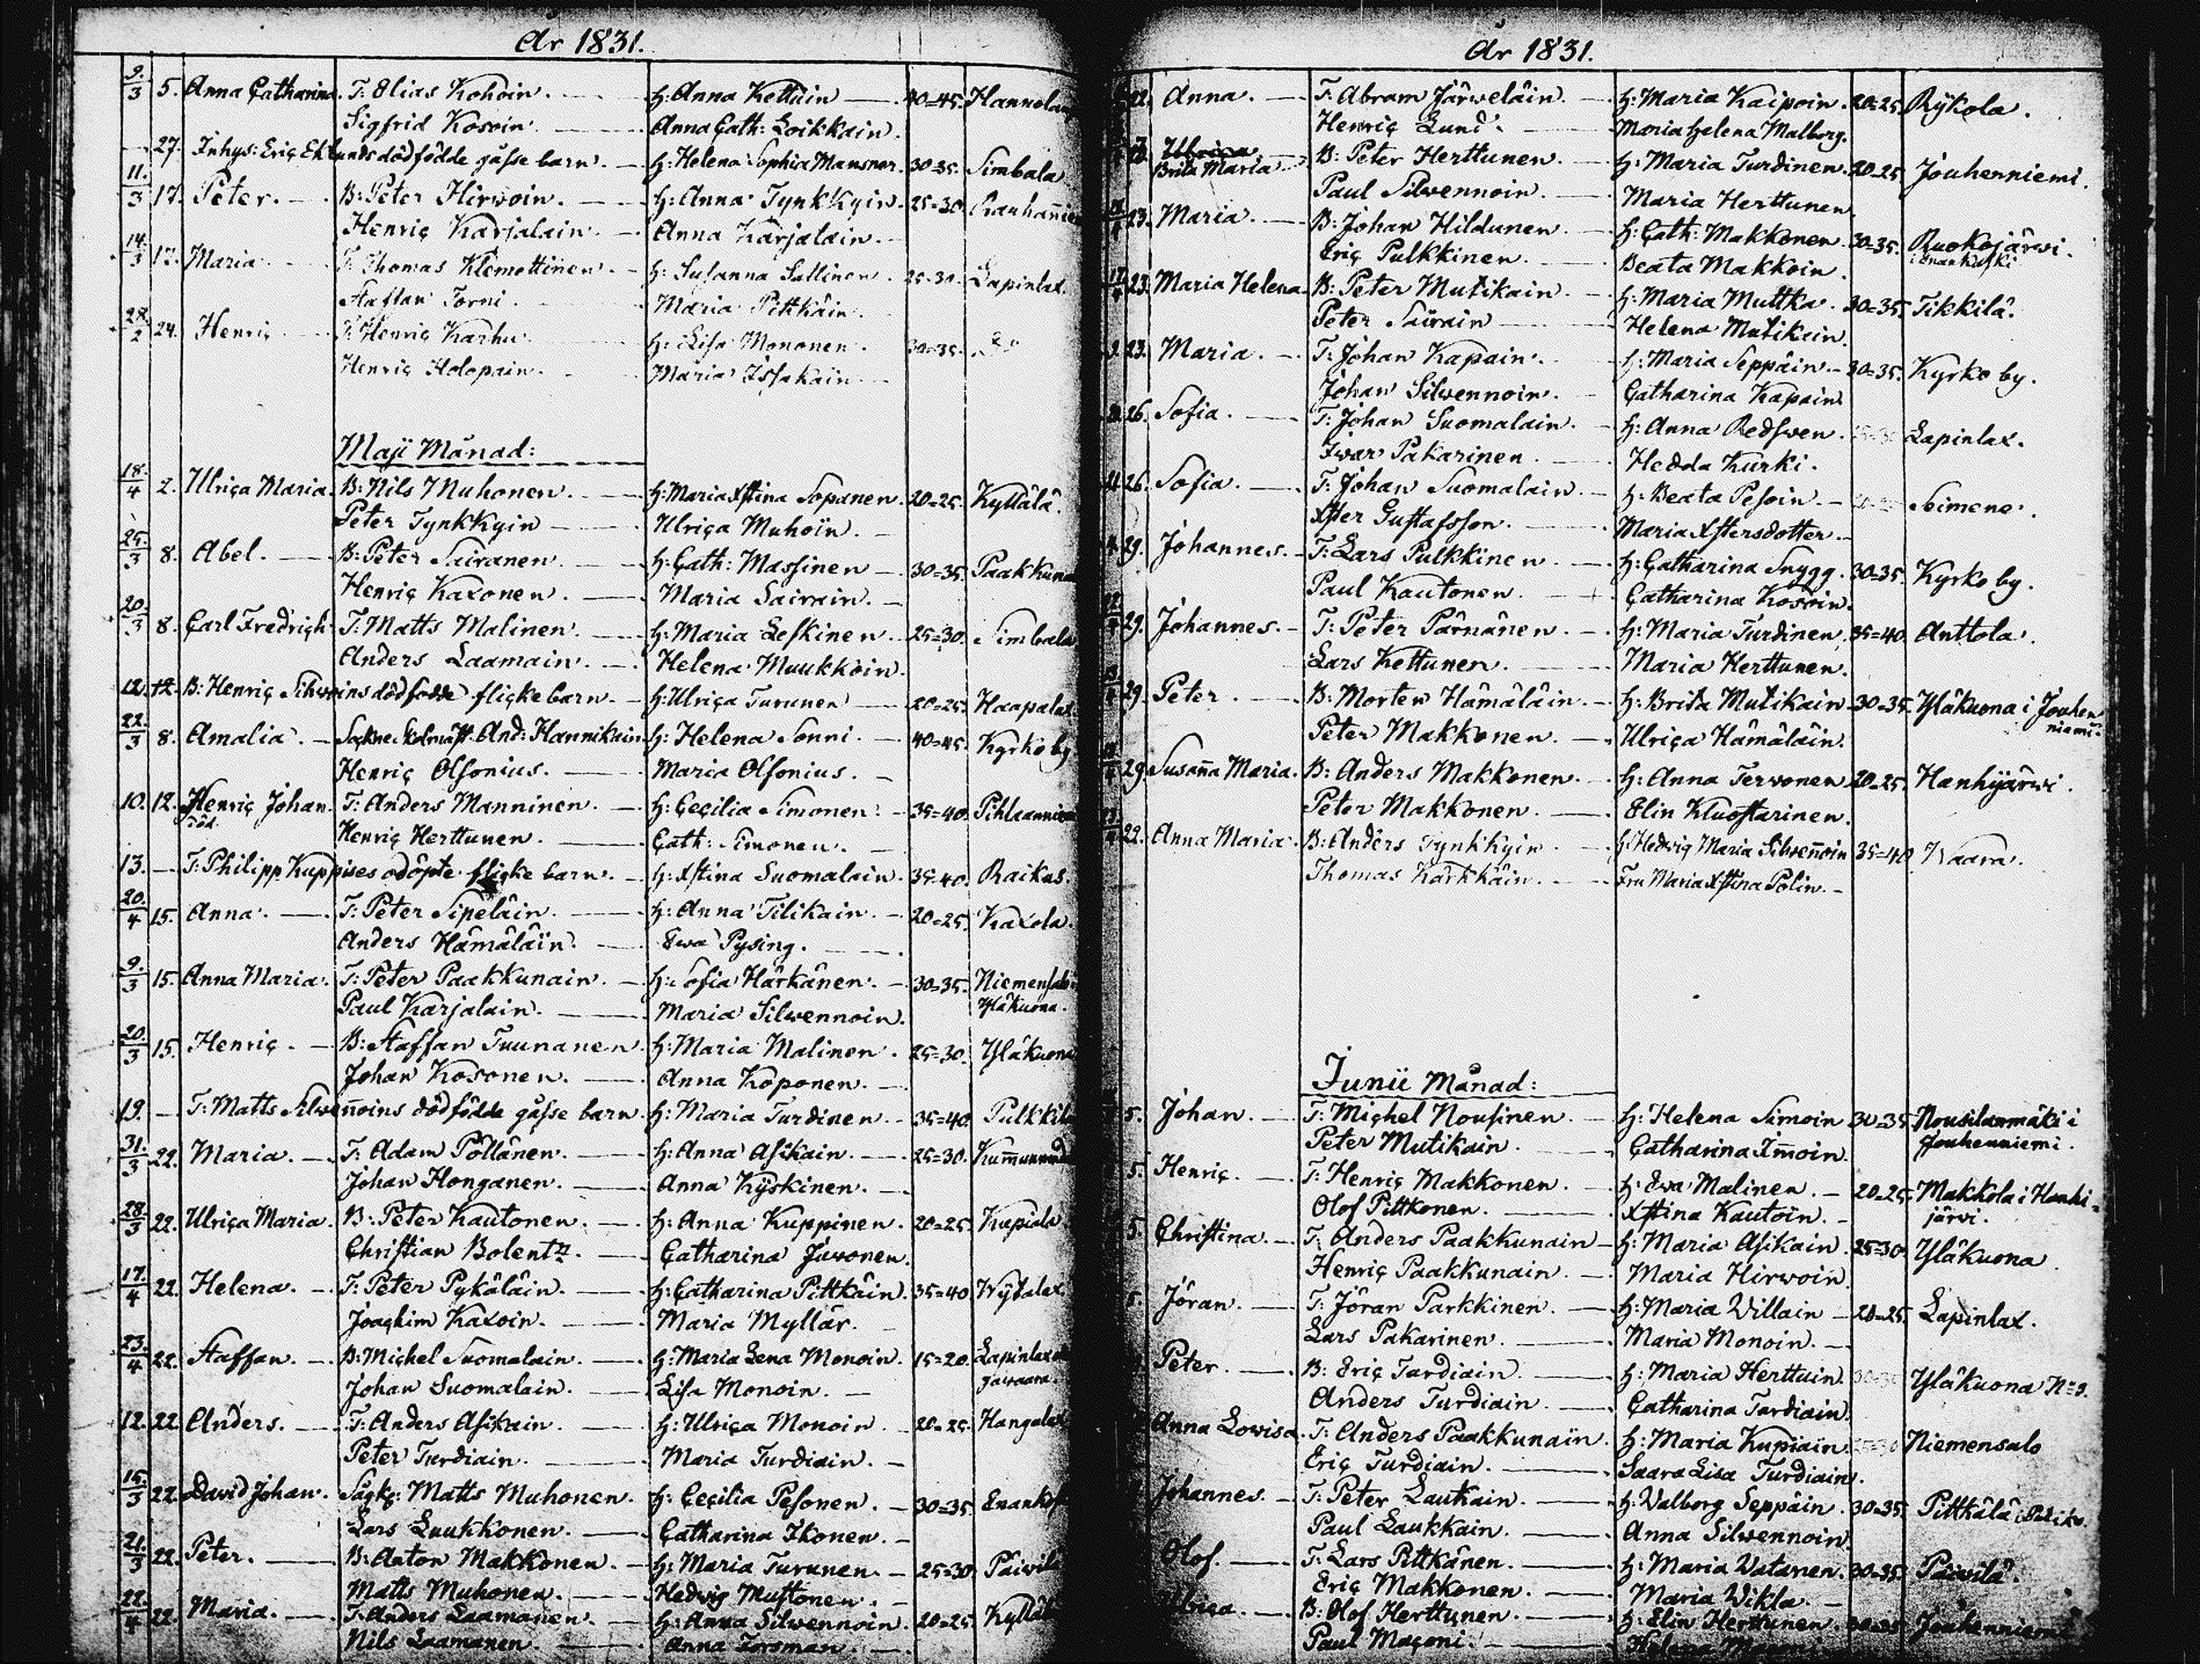 År 1831.
9/3 5. Anna Catharina. T: Elias Kohoin. H: Anna Kettuin 40=45. Hannola
Sigfrid Kosoin. Anna Cath: Loikkain.
27. Inhys: Eric Eklunds dödfödde gåsse barn. H: Helena Sophia Mansner. 30=35. Simbala
11/3 17. Peter. B: Peter Hirvoin. H: Anna Tynkkyin. 25=30. Rauhanie
Henric Karjalain. Anna Karjalain.
14/3 17. Maria T: Thomas Klemottinen. H: Susanna Sallinen. 25=30. Lapinlax.
Staffan Torni. Maria Pitkäin.
28/2 24. Henric T: Henric Karhu H: Lisa Mononen. 30=35. Do
Henric Holopain. Maria Issakain.
Maji Månad:
18/4 2. Ulrica Maria. B: Nils Muhonen. H: Maria Xstina Sopanen. 20=25. Kyllälä.
Peter Tynkkyin Ulrica Muhoin.
25/3 8. Abel. B: Peter Sairanen. H: Cath: Massinen 30=35. Paakkuna
Henric Kaxonen. Maria Sairain.
20/3 8. Carl Fredrich. T: Matts Malinen. H: Maria Leskinen. 25=30. Simbala
Anders Laamain. Helena Muukkoin.
12. 12. B: Henric Silwoins dödfödde flicke barn. H: Ulrica Turunen 20=25. Haapalax
22/3 8. Amalia. Sockne Skolmäst. And: Hannikain. H: Helena Sonni. 40=45. Kyrko by
Henric Olsonius. Maria Olsonius.
10. 12. Henric Johan. T: Anders Manninen. H: Cecilia Simonen: 35=40. Pihlaanniem
död. Henric Herttunen. Cath: Simonen.
13. T: Philipp Kuppises odöpte flicke barn. H: Xstina Suomalain. 35=40. Raikus.
20/4 15. Anna. T: Peter Sipeläin. H: Anna Tilikain. 20=25. Kaxola.
Anders Hämäläin. Ewa Pysing.
9/3 15. Anna Maria. T: Peter Paakkunain. H: Sofia Härkänen. 30=35. Niemensalo
Paul Karjalain. Maria Silwennoin. Yläkuona.
20/3 15. Henric. B: Staffan Tuunanen. H: Maria Malinen. 25=30. Yläkuona
Johan Kosonen. Anna Koponen.
19. T: Matts Silwennoins dödfödde gåsse barn. H: Maria Turdinen. 35=40. Pulkkila
31/3 22. Maria. T: Adam Pöllänen. H: Anna Asikain. 25=30. Kummun
Johan Honganen. Anna Kyskinen.
28/3 22. Ulrica Maria. B: Peter Kautonen. H: Anna Kuppinen. 20=25. Kupiala
Christian Bolentn. Catharina Juvonen.
17/4 22. Helena. T: Peter Pykäläin. H: Catharina Pittkäin. 35=40. Wytalax
Joachim Kaxoin. Maria Myllär.
23/4 22. Staffan. B: Michel Suomalain. H: Maria Lena Monoin. 15=20. Lapinlax
Johan Suomalain. Lisa Monoin.
12. 22. Anders. T: Anders Asikain. H: Ulrica Monoin. 20=25. Hangalax
Peter Turdiain. Maria Turdiain.
15/3 22. David Johan. Sockc: Matts Muhonen. H: Cecilia Pesonen. 30=35. Enankos
Lars Luukkonen. Catharina Ikonen.
21/3 22. Peter. B: Anton Makkonen. H: Maria Turunen. 25=30. Päiwilä
Matts Muhonen. Hedwig Mustonen.
22/4 22. Maria. T: Anders Laamanen. H: Anna Silwennoin. 20=25. Kyllälä
Nils Laamanen. Anna Forsman.
År 1831.
22. Anna. T: Abram Järweläin. H: Maria Kaipoin. 20=25. Rykola.
Henric Lund. Maria Helena Malborg.
Ulrica Brita Maria B: Peter Herttunen. H: Maria Turdinen. 20=25. Jouhenniemi.
Paul Silwennoin. Maria Herttunen.
23. Maria. B: Johan Hildunen. H: Cath: Makkonen. 30=35. Ruokojärwi.
Eric Pulkkinen. Beata Makkoin. i Enankoski
17/4 23. Maria Helena B: Peter Mutikain. H: Maria Muttka. 30=35. Tikkilä.
Peter Sairain Helena Mutikain.
9. 23. Maria. T: Johan Kapain. H: Maria Seppäin. 30=35. Kyrko by.
Johan Silwennoin. Catharina Kapain.
26. Sofia. T: Johan Suomalain. H: Anna Redswen. Lapinlax.
Iwar Pakarinen. Hedda Kurki.
26. Sofia. T: Johan Suomalain. H: Beata Pesoin. Seimene.
Xster Gustafsson. Maria Xstersdotter.
29. Johannes. T: Lars Pulkkinen. H: Catharina Snygg. 30=35. Kyrko by.
Paul Kautonen. Catharina Kosoin.
29. Johannes. T: Peter Pärnänen. H: Maria Turdinen. 35=40. Anttola.
Lars Kettunen. Maria Herttunen.
29. Peter. B: Morten Hämäläin. H: Brita Mutikain. 30=35. Yläkuona i Jouhen
Peter Makkonen. Ulrica Hämäläin. niemi.
29. Susanna Maria. B: Anders Makkonen. H: Anna Tervonen. 20=25. Hanhijärwi.
Peter Makkonen. Elin Kluostarinen.
29. Anna Maria. B: Anders Tynkkyin H: Hedvig Maria Silwennoin 35=40. Waara.
Thomas Kärkkäin. Fru Maria Xstina Polin.
Junii Månad:
5. Johan. T: Michel Nousinen. H: Helena Simoin 30=35. Nousilanmäki i
Peter Mutikain. Catharina Immoin. Jouhenniemi.
5. Henric. T: Henric Makkonen. H: Ewa Malinen. 20=25. Makkola i Hanhi=
Olof Pittkonen. Xstina Kautoin. järvi.
5. Christina. T: Anders Paakkunain H: Maria Asikain. 25=30. Yläkuona.
Henric Paakkunain. Maria Hirwoin.
5. Jöran. T: Jöran Parkkinen. H: Maria Villain 20=25. Lapinlax.
Lars Pakarinen. Maria Monoin.
Peter. B: Eric Turdiain. H: Maria Herttuin. Yläkuona No 3.
Anders Turdiain. Catharina Turdiain.
Anna Lowisa. T: Anders Paakkunain. H: Maria Kupiain. Niemensalo
Eric Turdiain. Saara Lisa Turdiain.
Johannes. T: Peter Lautkain. H: Walborg Seppäin. 30=35. Pittkälä
Paul Laukkain. Anna Silwennoin.
Olof. T: Lars Pittkänen. H: Maria Watanen. 30=35. Päiwilä.
Eric Makkonen. Maria Wikla.
Ulrica. B: Olof Herttunen. H: Elin Herttunen. Jouhenniemi
Paul Maconi. Helena